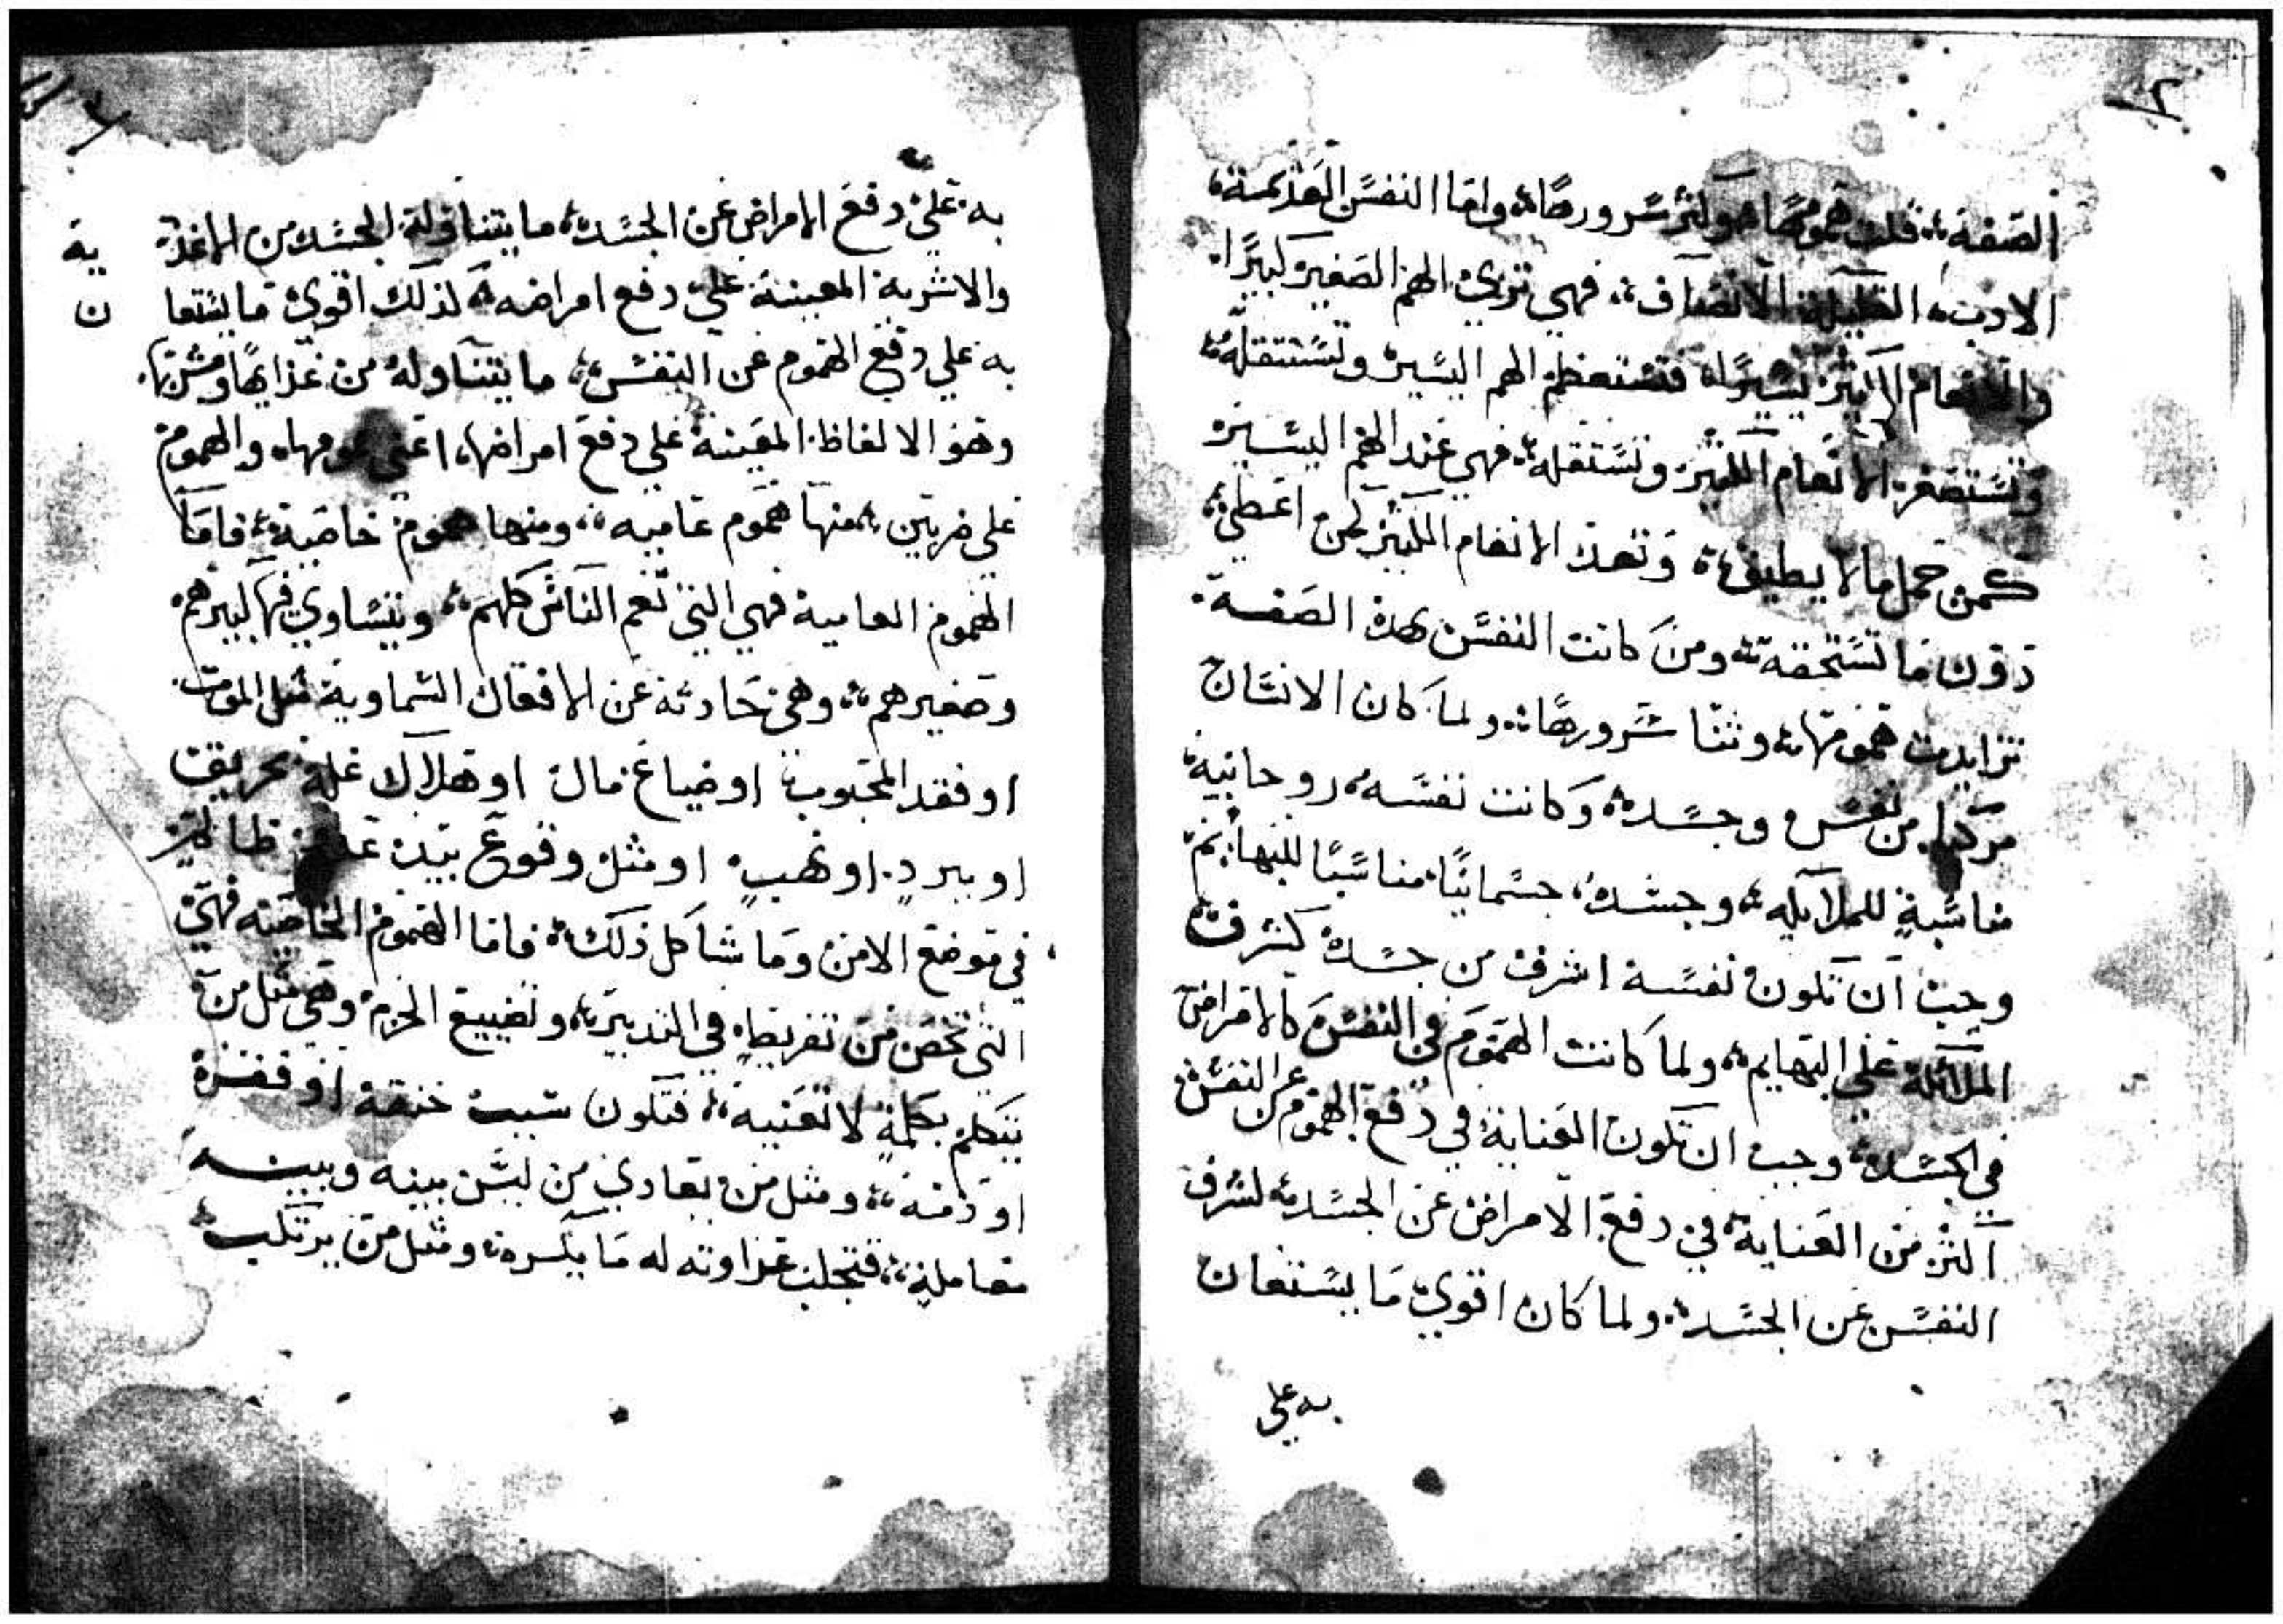 ٢
الصفة، قلت همومها وكثر سرورها، واما النفس العديمة
الادب، القليلة الانصاف، فهي تري الهم الصغير كبيرًا
والانعام الكثير يسيرًا، فتستعظم الهم اليسير وتستثقله
وتستصغر الانعام الكثير وتستقله، فهي عند الهم اليسير
كمن حمل ما لا يطيق، وتعد الانعام الكثير كمن اعطي
دون ما تستحقه، ومن كانت النفس بهذه الصفة
تزايدت همومها، وتنا سرورها، ولما كان الانسان
مركبا من نفس وجسد، وكانت نفسه روحانية
مناسبة للملايكه، وجسده جسمانيًا مناسبًا للبهايم
وجب ان تكون نفسه اشرف من جسده كشرف
الملائكة علي البهايم، ولما كانت الهموم في النفس كالامراض
في الجسد، وجب ان تكون العناية في دفع الهموم عن النفس
اكثر من العناية في دفع الامراض عن الجسد، لشرف
النفس عن الجسد، ولما كان اقوي ما يستعان
به علي
به علي دفع الامراض عن الجسد، ما يتناوله الجسد من الاغذية
والاشربة المعينة علي دفع امراضه، كذلك اقوي ما يستعان
به علي دفع الهموم عن النفس، ما يتناوله من غذايها ومشربها
وهو الالفاظ المعينة علي دفع امراضها، اعني همومها، والهموم
علي ضربين، منها هموم عاميه، ومنها هموم خاصية، فاما
الهموم العامية فهي التي تعم الناس كلهم، ويتساوي فيها كبيرهم
وصغيرهم، وهي حادثة عن الافعال السماوية مثل الموت
او فقد المحبوب او ضياع مال او هلاك غلة بحريق
او ببردٍ او نهبٍ او مثل وقوع بيدن ظالم
في موضع الامن وما شاكل ذلك، فاما الهموم الخاصية فهي
التي تخص من تفريط في التدبير، وتضييع الحزم وهي مثل من
يتكلم بكلمةٍ لا تعنيه، فتكون سبب خنقه او فقره
او ذمه، ومثل من يعادي من ليس بينه وبينه
معاملة، فتجلب عداوته له ما يكره، ومثل من يرتكب